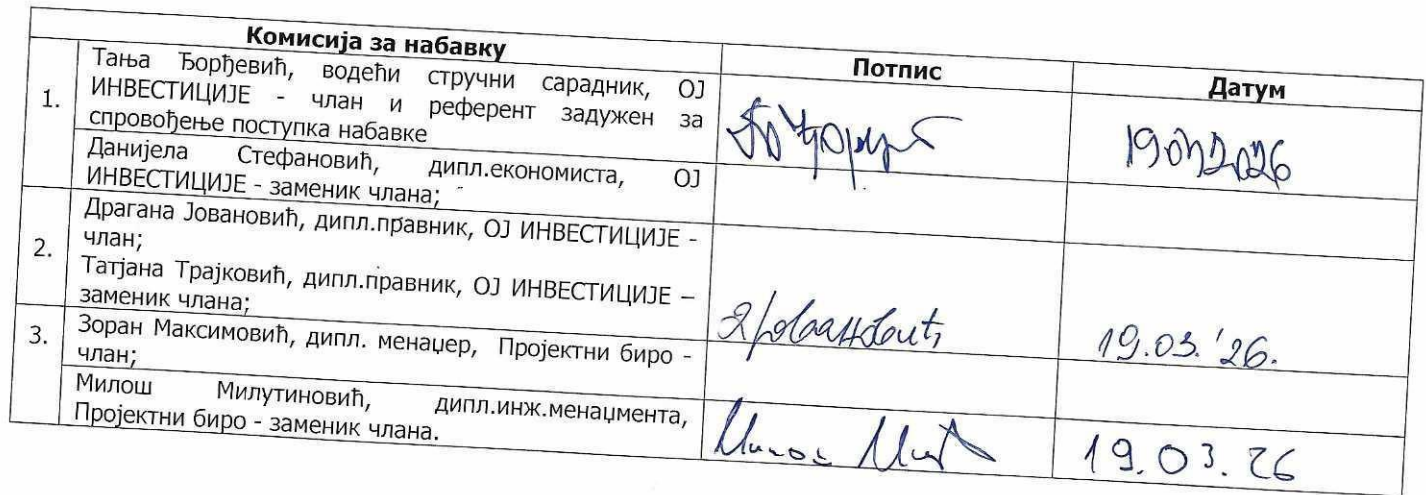 Комисија за набавку Потпис Датум
1. Тања Ђорђевић, водећи стручни сарадник, ОЈ
ИНВЕСТИЦИЈЕ - члан и референт задужен за
спровођење поступка набавке
19.03.2026
Данијела Стефановић, дипл.економиста, ОЈ
ИНВЕСТИЦИЈЕ - заменик члана;
2. Драгана Јовановић, дипл.правник, ОЈ ИНВЕСТИЦИЈЕ -
члан;
Татјана Трајковић, дипл.правник, ОЈ ИНВЕСТИЦИЈЕ –
заменик члана;
19.03.'26.
3. Зоран Максимовић, дипл. менаџер, Пројектни биро -
члан;
Милош Милутиновић, дипл.инж.менаџмента,
Пројектни биро - заменик члана.
19.03.26